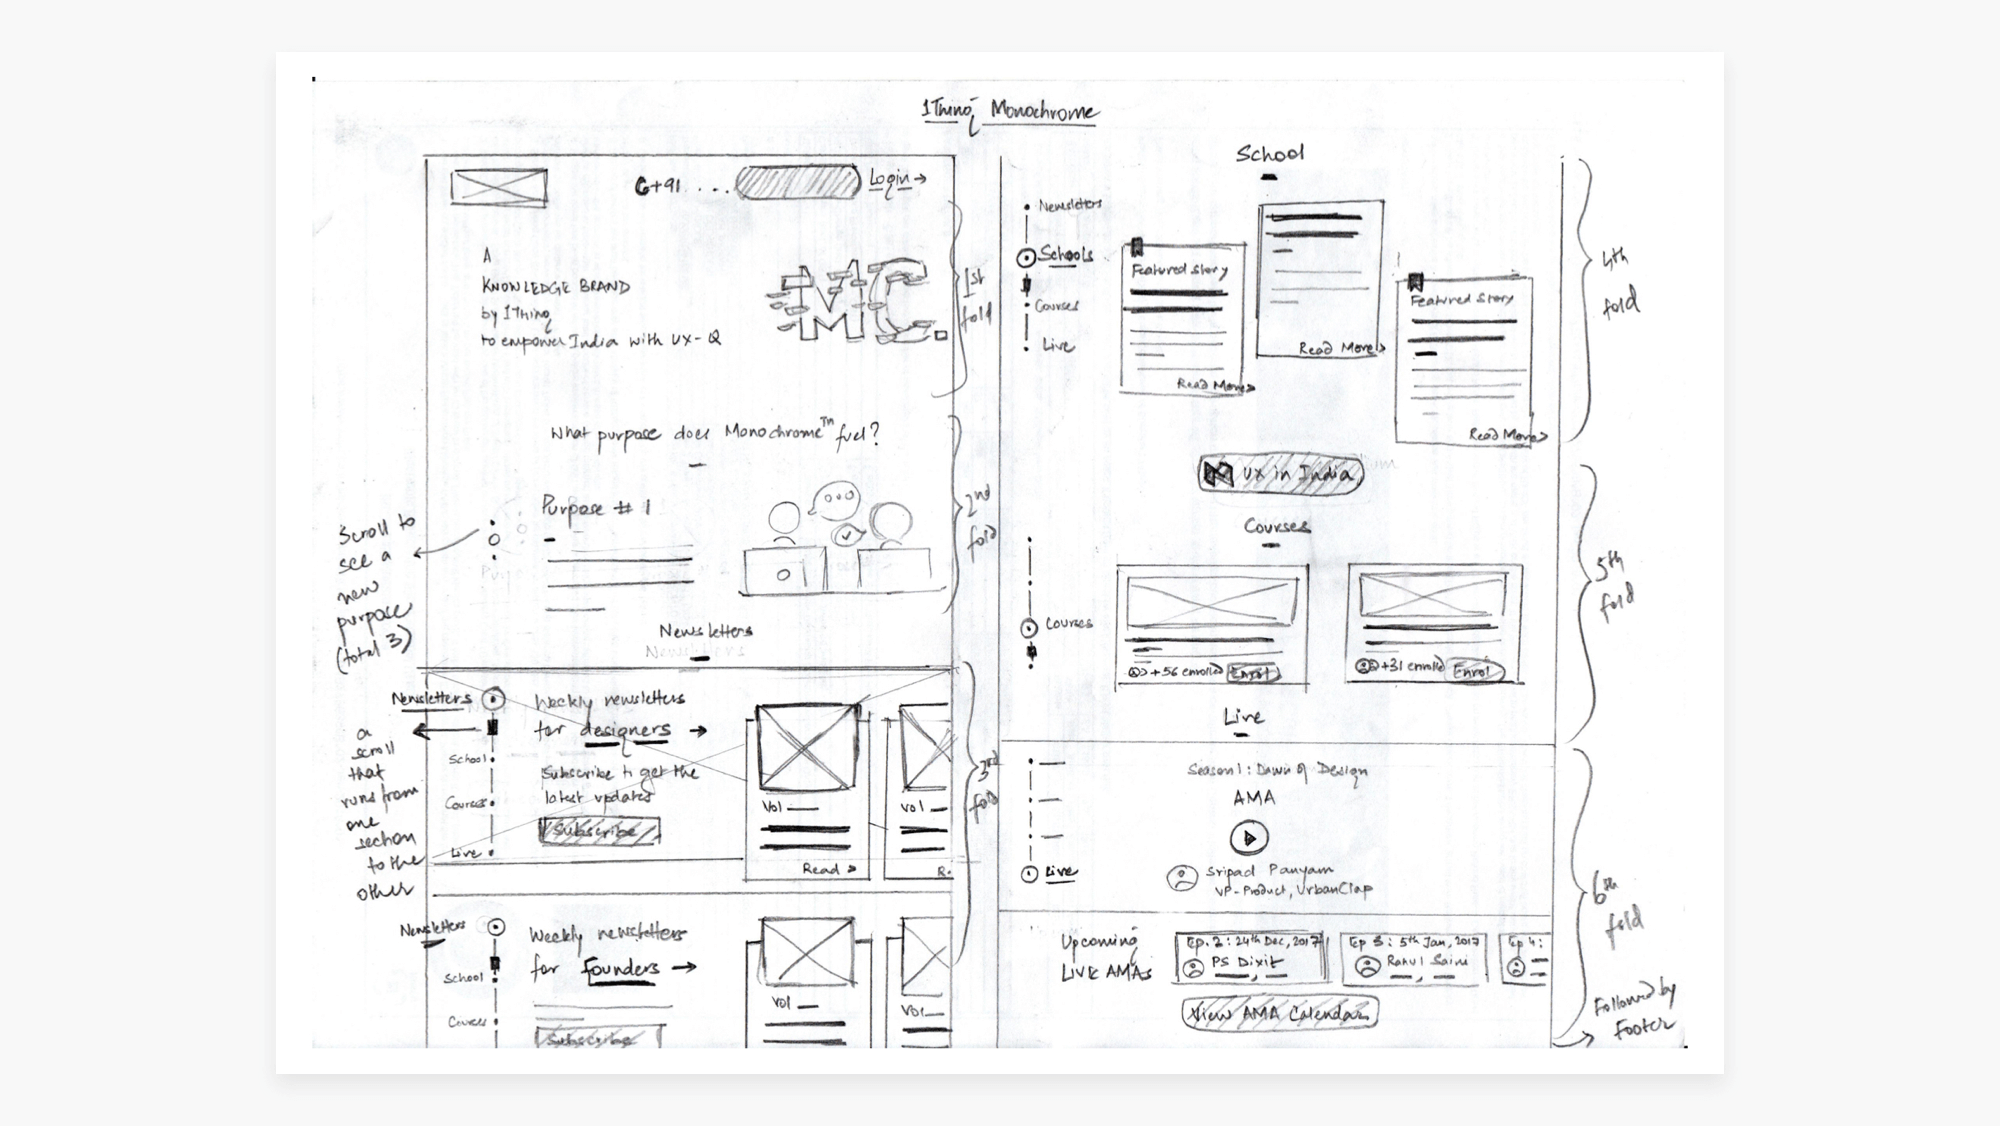 1Thing Monochrome
G+91 ...
Login →
A
KNOWLEDGE BRAND
by 1Thing
to empower India with UX-Q
MC.
1st
fold
What purpose does Monochrome™ fuel?
Purpose # 1
2nd
fold
Scroll to
see a
new
purpose
(total 3)
Newsletters
Newsletters
School
Courses
Live
a
scroll
that
runs from
one
section
to the
other
Weekly newsletters
for designers →
Subscribe to get the
latest updates
Subscribe
Vol
Read >
Vol
R.
3rd
fold
Newsletters
School
Courses
Weekly newsletters
for founders →
Subscribe
Vol
Vol
School
Newsletters
Schools
Courses
Live
Featured Story
Read More >
Read More >
Featured Story
Read More >
4th
fold
UX in India
Courses
Courses
+56 enrolled Enrol
+31 enrolled Enrol
5th
fold
Live
Season 1: Dawn of Design
AMA
Live
Sripad Panyam
VP-Product, UrbanClap
Upcoming
LIVE AMAs
Ep. 2 : 24th Dec, 2017
PS Dixit
Ep 3 : 5th Jan, 2017
Rahul Saini
Ep 4 :
View AMA Calendar
6th
fold
Followed by
Footer